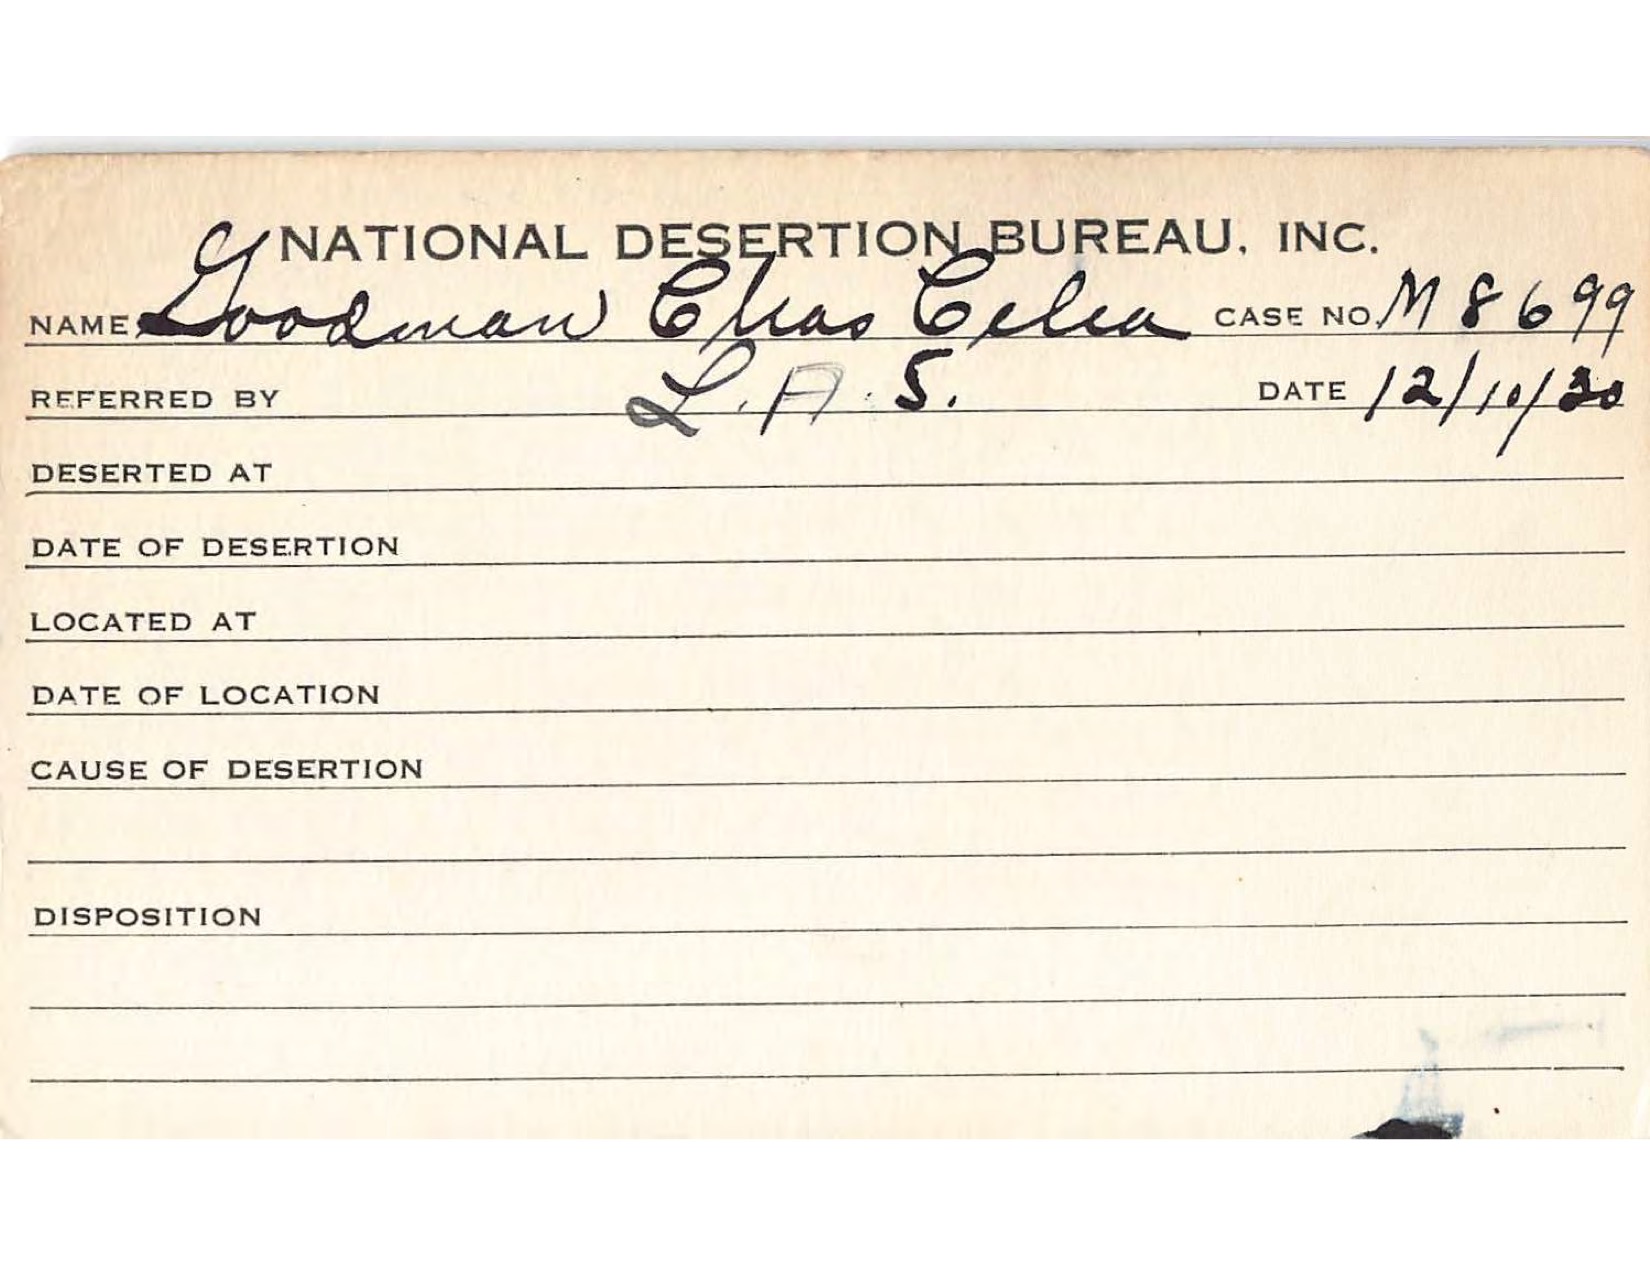 NATIONAL DESERTION BUREAU, INC.
NAME Goodman Chas Celia CASE NO. M 8699
REFERRED BY L.A.S. DATE 12/10/30
DESERTED AT
DATE OF DESERTION
LOCATED AT
DATE OF LOCATION
CAUSE OF DESERTION
DISPOSITION